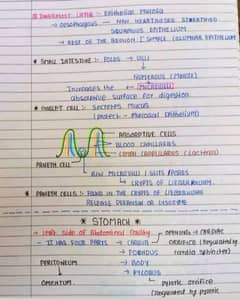 * INNERMOST LAYER :- Epithelial Mucosa
→ Oesophagus — NON KERATINISED STRATIFIED
SQUAMOUS EPITHELIUM
→ REST OF THE REGION | SIMPLE COLUMNAR EPITHELIUM
* SMALL INTESTINE : FOLDS → VILLI
↓
NUMEROUS
Increases the ← MICROVILLI
absorptive surface for digestion
* GOBLET CELL : Secretes MUCUS
(protect - Mucosal Epithelium)
ABSORPTIVE CELLS
BLOOD CAPILLARIES
LYMPH CAPILLARIES (LACTEALS)
PANETH CELL
B/W MICROVILLI
→ CRYPTS OF LIEBERKUHN.
* PANETH CELLS :- FOUND IN THE CRYPTS OF LIEBERKUHN
RELEASE
* STOMACH *
→ Left side of Abdominal Cavity
OPENING → CARDIAC
- IT HAS FOUR PARTS → CARDIA
ORIFICE (Regulated by
→ FUNDUS
cardia sphincter)
PERITONEUM
→ BODY
→ PYLORUS
OMENTUM.
pyloric orifice
(Regulated by pyloric